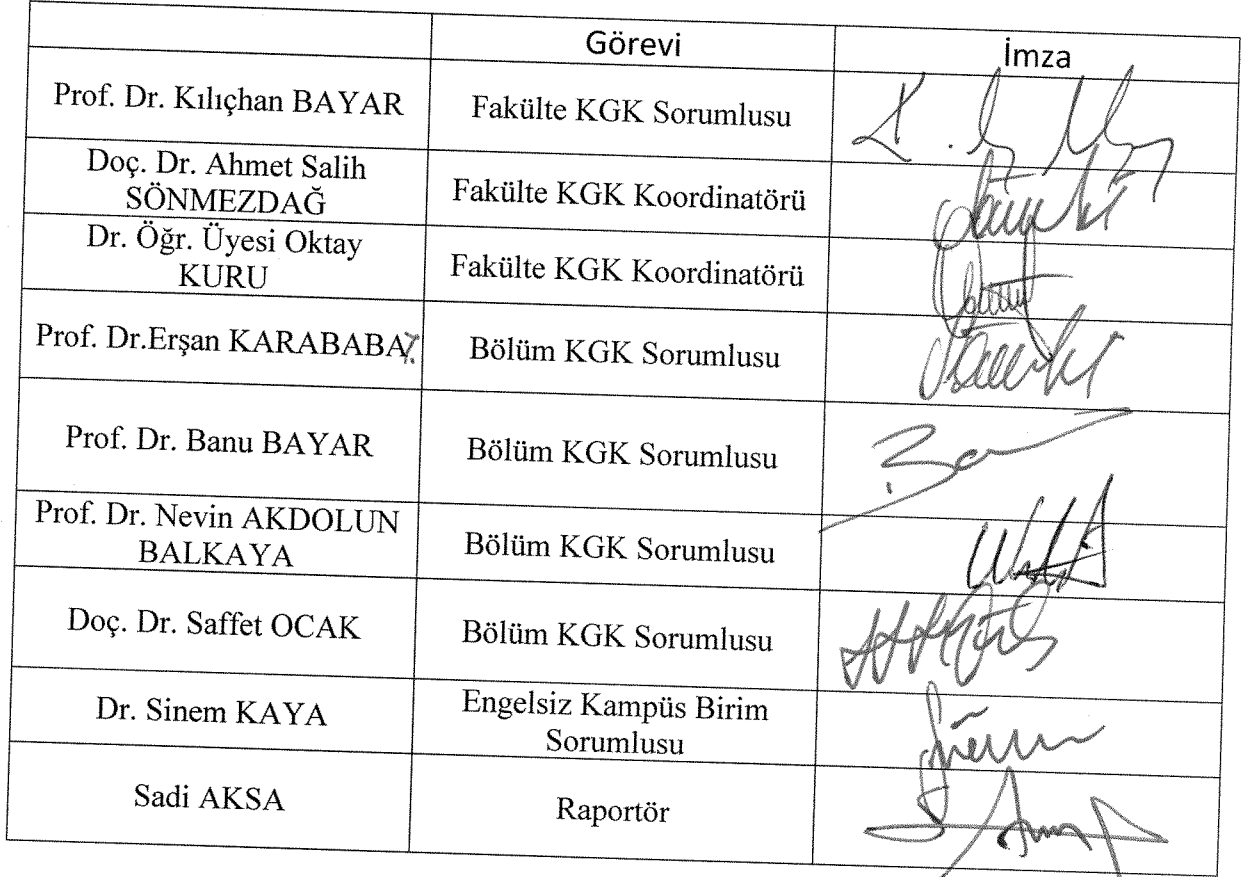 Görevi İmza
Prof. Dr. Kılıçhan BAYAR Fakülte KGK Sorumlusu
Doç. Dr. Ahmet Salih
SÖNMEZDAĞ
Fakülte KGK Koordinatörü
Dr. Öğr. Üyesi Oktay
KURU
Fakülte KGK Koordinatörü
Prof. Dr.Erşan KARABABA Bölüm KGK Sorumlusu
Prof. Dr. Banu BAYAR Bölüm KGK Sorumlusu
Prof. Dr. Nevin AKDOLUN
BALKAYA
Bölüm KGK Sorumlusu
Doç. Dr. Saffet OCAK Bölüm KGK Sorumlusu
Dr. Sinem KAYA
Engelsiz Kampüs Birim
Sorumlusu
Sadi AKSA Raportör